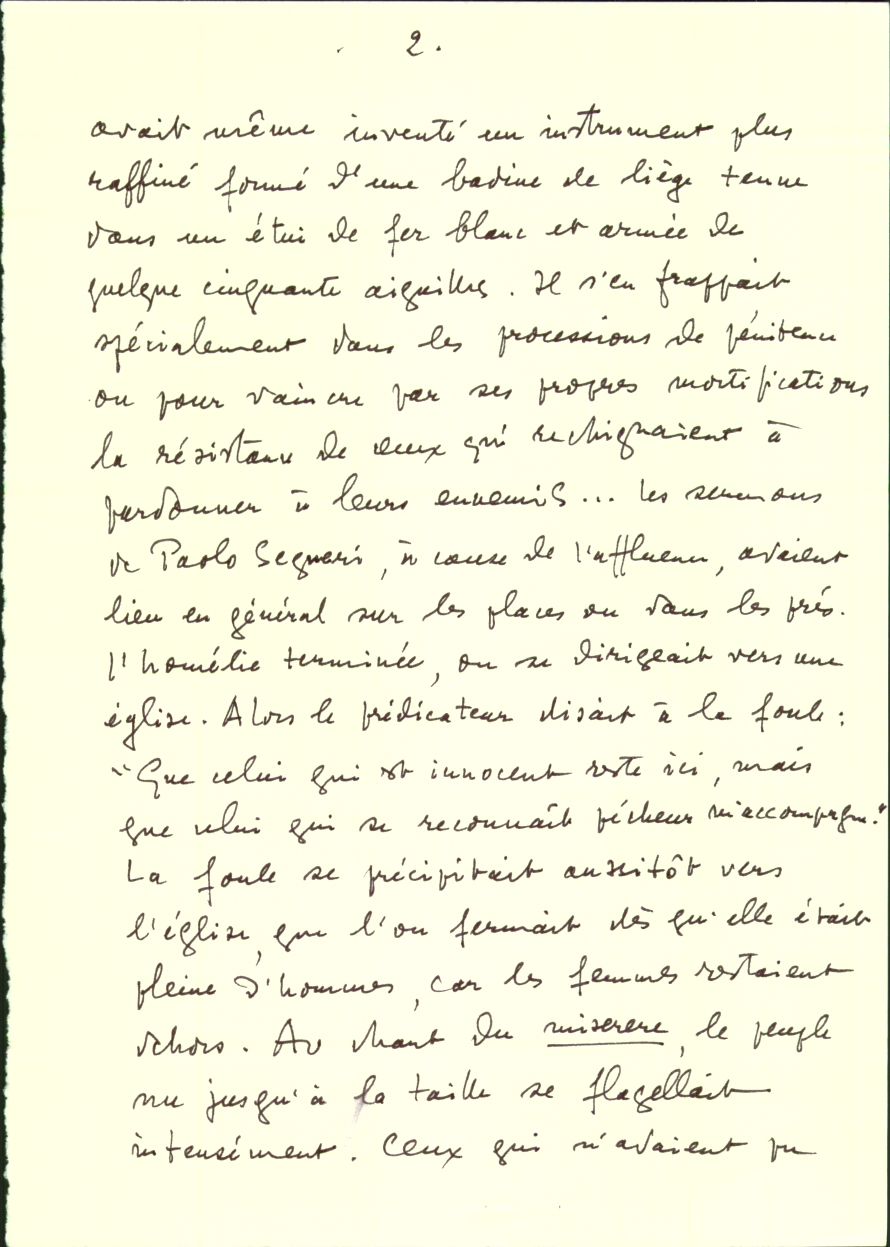 2.
avait même inventé un instrument plus
raffiné formé d'une badine de liège tenue
dans un étui de fer blanc et armée de
quelque cinquante aiguilles. Il s'en frappait
spécialement dans les processions de pénitence
ou pour vaincre par ses propres mortifications
la résistance de ceux qui rechignaient à
pardonner à leurs ennemis... Les sermons
de Paolo Segneri, à cause de l'affluence, avaient
lieu en général sur les places ou dans les prés.
L'homélie terminée, on se dirigeait vers une
église. Alors le prédicateur disait à la foule :
"Que celui qui est innocent reste ici, mais
que celui qui se reconnaît pécheur m'accompagne."
La foule se précipitait aussitôt vers
l'église, que l'on fermait dès qu'elle était
pleine d'hommes, car les femmes restaient
dehors. Au chant du miserere, le peuple
nu jusqu'à la taille se flagellait
intensément. Ceux qui n'avaient pu